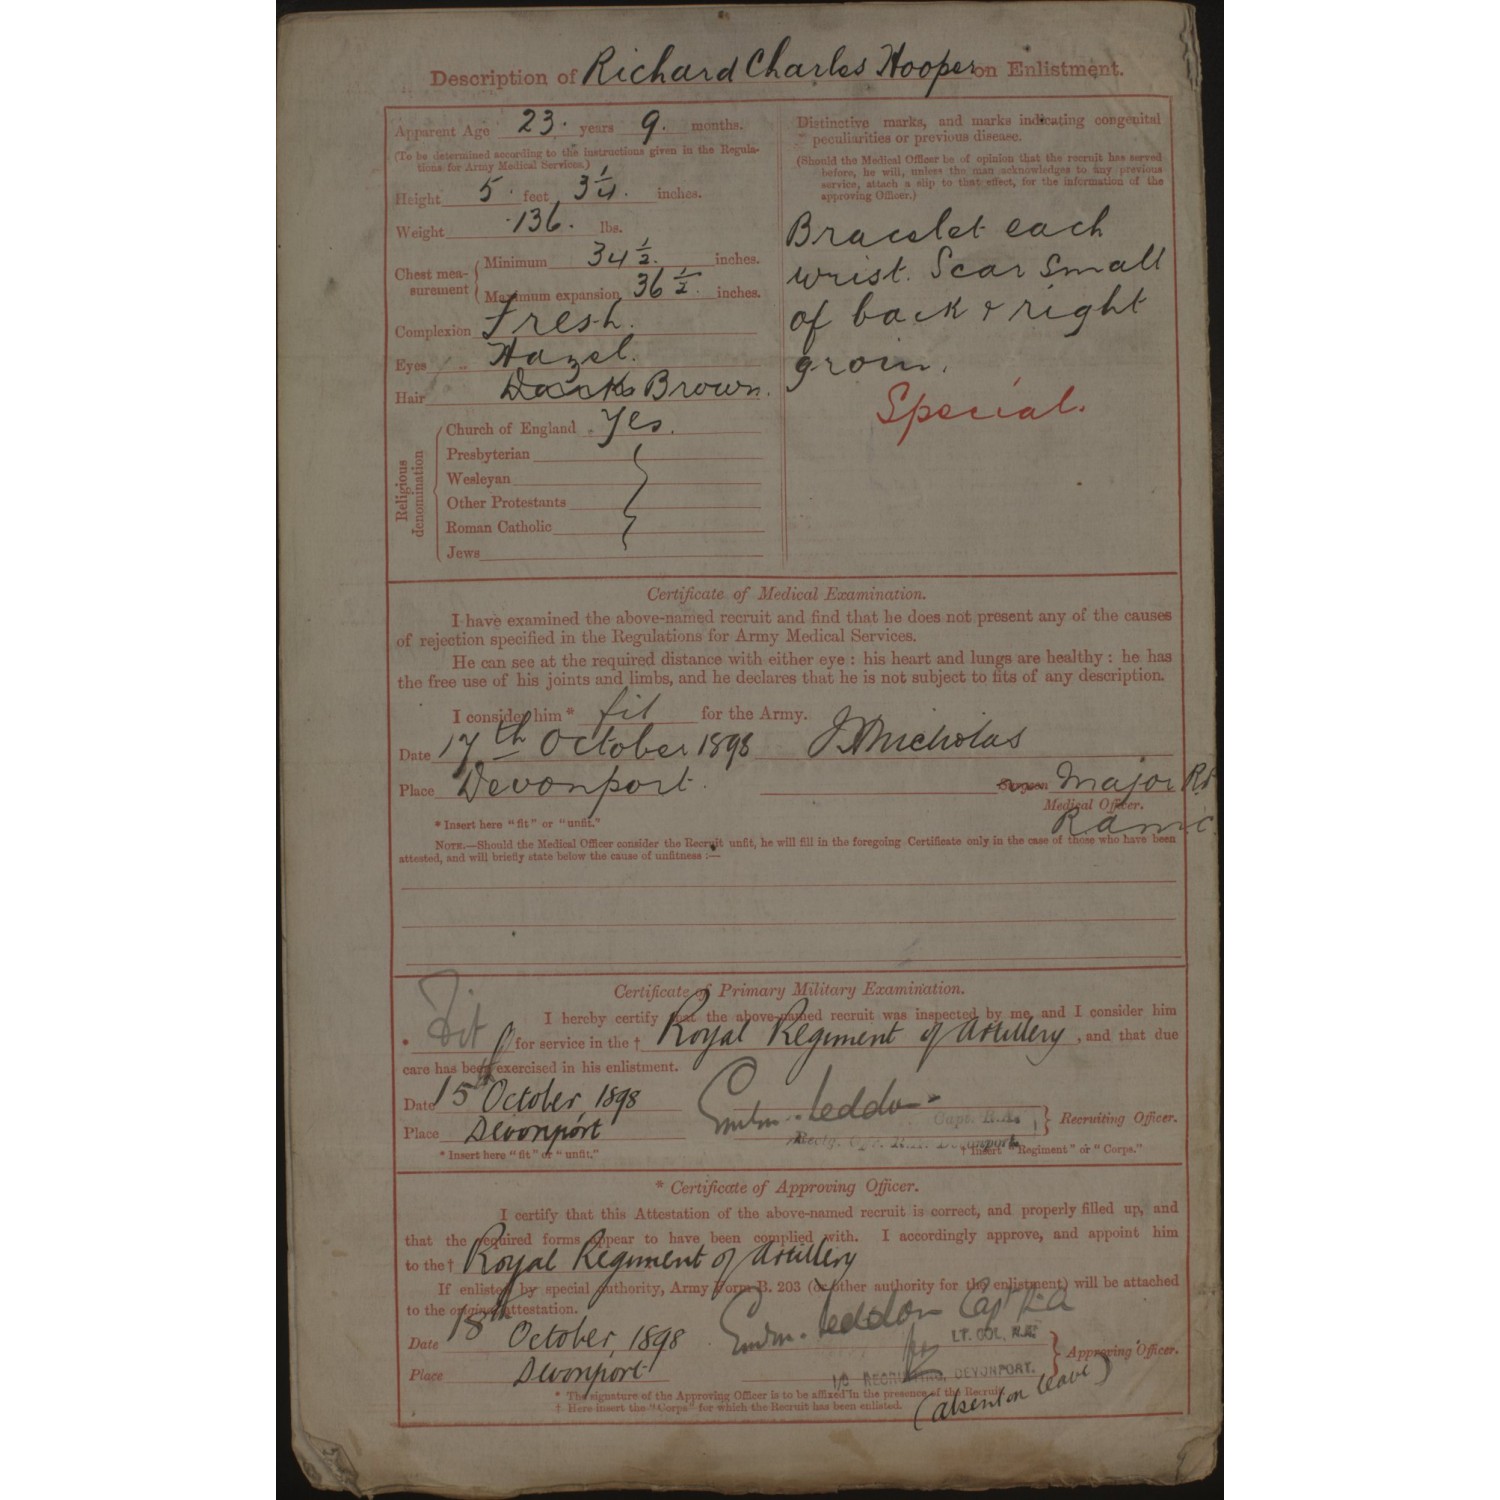 Description of Richard Charles Hooper on Enlistment.
Apparent Age 23. years 9. months.
(To be determined according to the instructions given in the Regula-
tions for Army Medical Services.)
Height 5. feet 3 1/4. inches.
Weight 136. lbs.
Chest mea-
surement
Minimum 34 1/2. inches.
Maximum expansion 36 1/2. inches.
Complexion Fresh.
Eyes Hazel.
Hair Dark Brown.
Religious
denomination
Church of England Yes.
Presbyterian
Wesleyan
Other Protestants
Roman Catholic
Jews
Distinctive marks, and marks indicating congenital
peculiarities or previous disease.
(Should the Medical Officer be of opinion that the recruit has served
before, he will, unless the man acknowledges to any previous
service, attach a slip to that effect, for the information of the
approving Officer.)
Bracelet each
wrist. Scar small
of back & right
groin.
Special.
Certificate of Medical Examination.
I have examined the above-named recruit and find that he does not present any of the causes
of rejection specified in the Regulations for Army Medical Services.
He can see at the required distance with either eye: his heart and lungs are healthy: he has
the free use of his joints and limbs, and he declares that he is not subject to fits of any description.
I consider him * fit for the Army.
Date 17th October 1898 Nicholas
Place Devonport. Surgeon Major
Medical Officer.
R.A.M.C.
* Insert here "fit" or "unfit."
NOTE.—Should the Medical Officer consider the Recruit unfit, he will fill in the foregoing Certificate only in the case of those who have been
attested, and will briefly state below the cause of unfitness:—
Certificate of Primary Military Examination.
I hereby certify that the above-named recruit was inspected by me, and I consider him
* Fit for service in the † Royal Regiment of Artillery, and that due
care has been exercised in his enlistment.
Date 15 October, 1898
Capt. R.A. Recruiting Officer.
Place Devonport
Devonport.
* Insert here "fit" or "unfit."
† Insert "Regiment" or "Corps."
* Certificate of Approving Officer.
I certify that this Attestation of the above-named recruit is correct, and properly filled up, and
that the required forms appear to have been complied with. I accordingly approve, and appoint him
to the † Royal Regiment of Artillery
If enlisted by special authority, Army Form B. 203 (or other authority for the enlistment) will be attached
to the original attestation.
Capt RA
Date 18th October, 1898
for LT. COL, R.A. Approving Officer.
Place Devonport
RECRUITING, DEVONPORT.
* The signature of the Approving Officer is to be affixed in the presence of the Recruit.
† Here insert the "Corps" for which the Recruit has been enlisted.
(absent on leave)